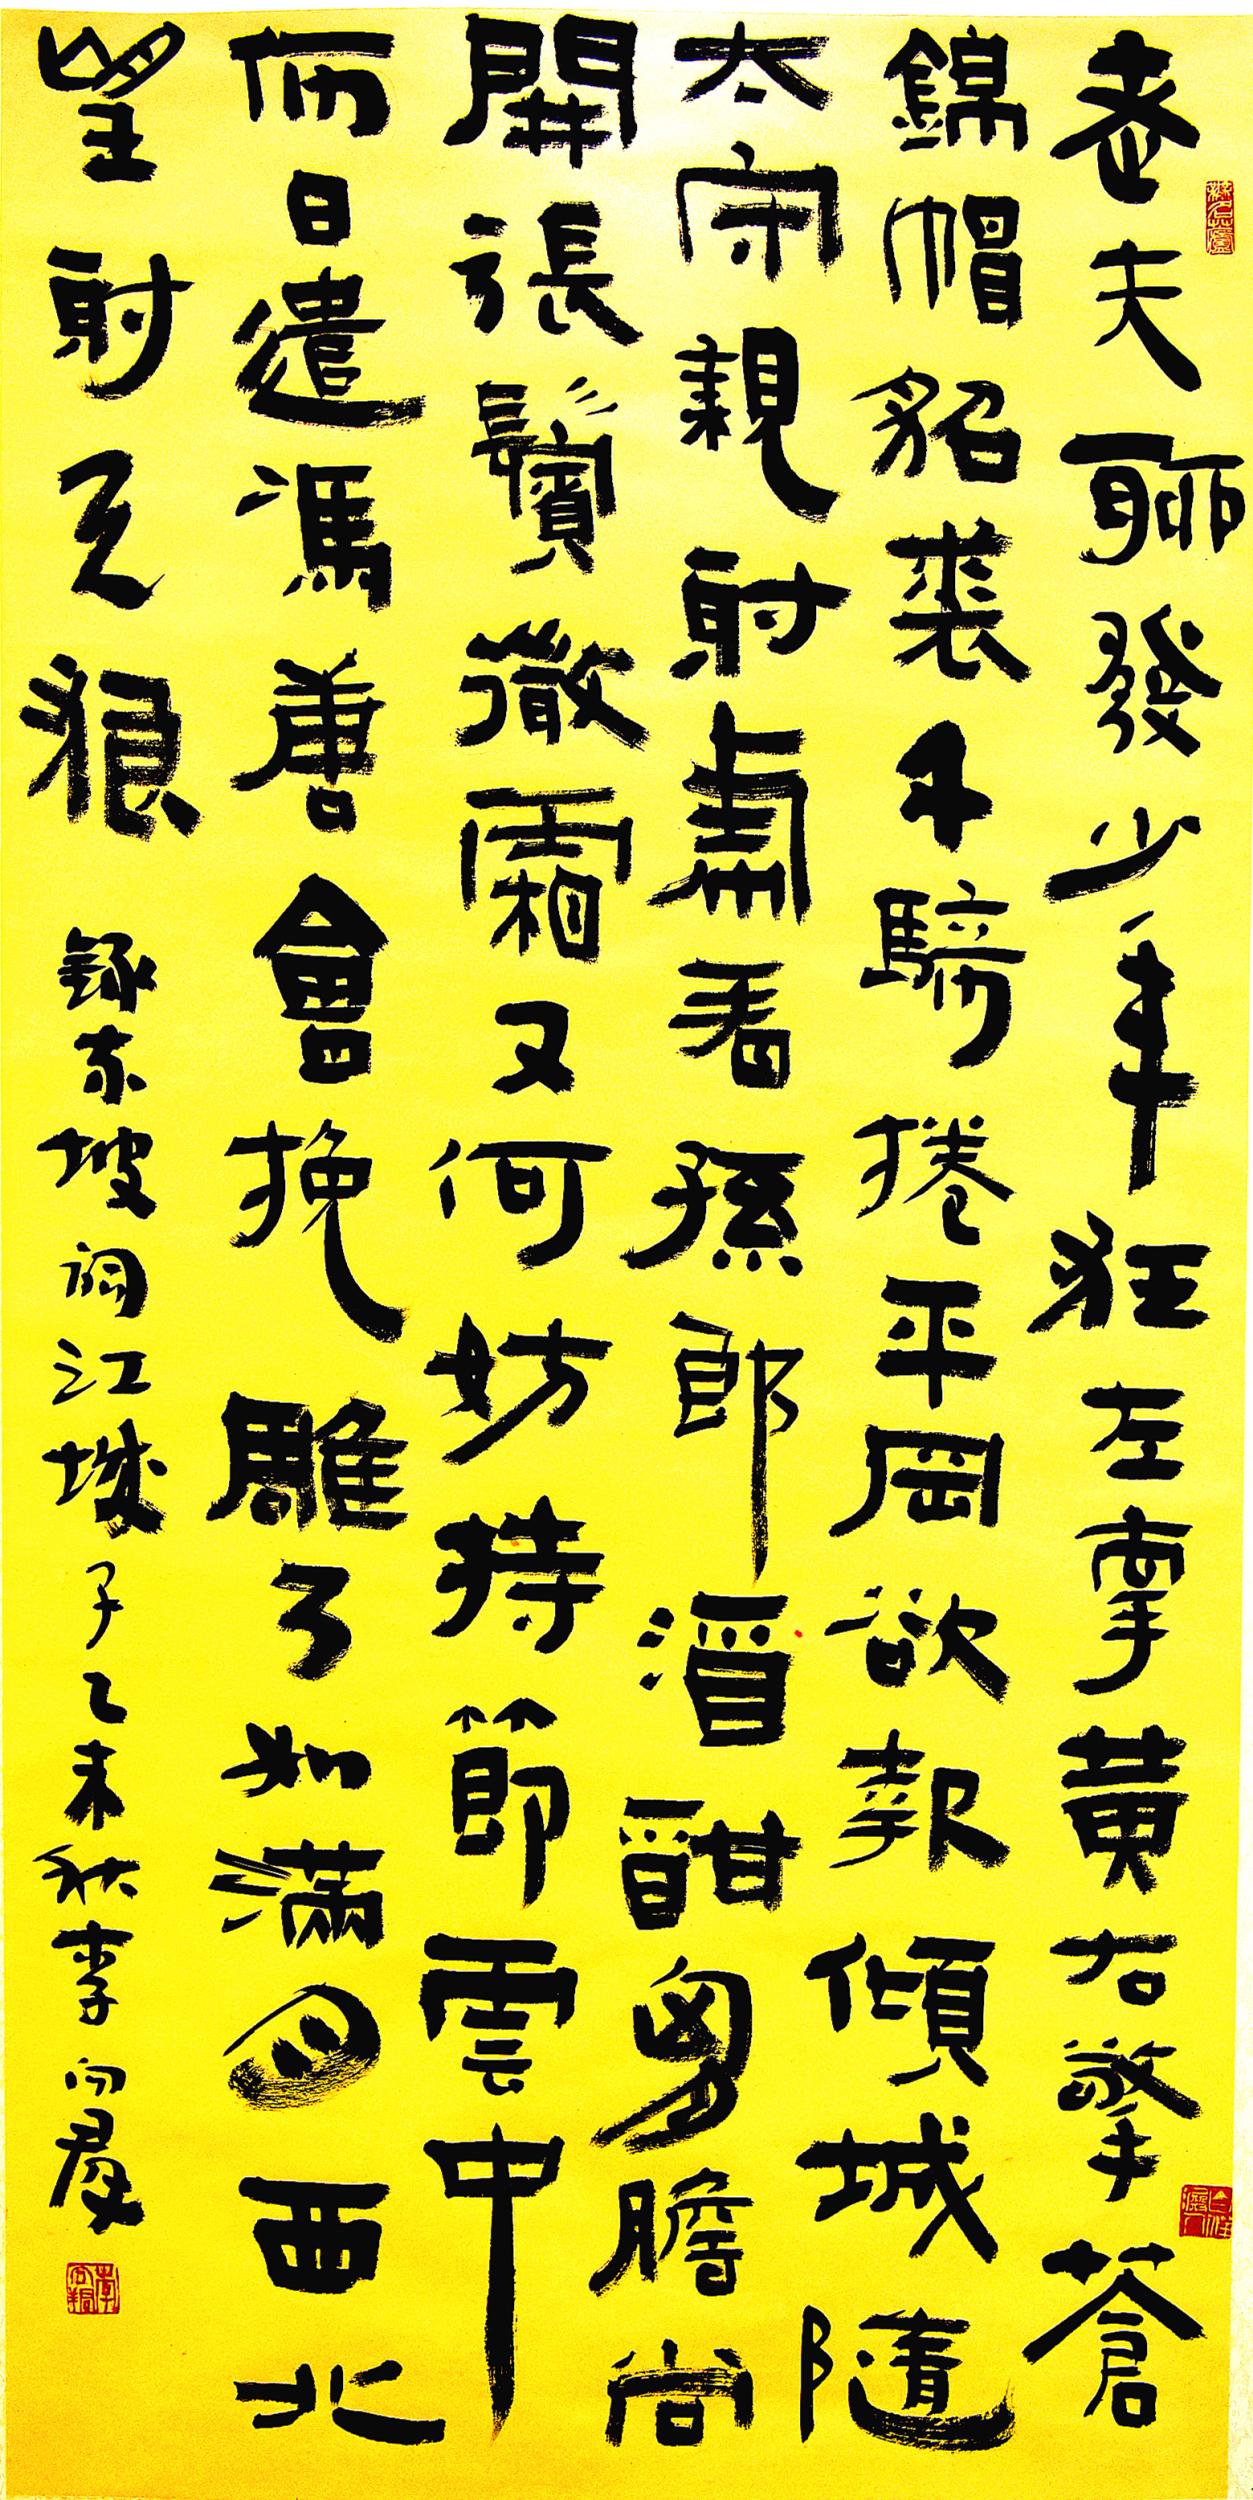 老夫聊發少年狂左牽黃右擎蒼
錦帽貂裘千騎捲平岡欲報傾城隨
太守親射虎看孫郎酒酣胷膽尚
開張鬢微霜又何妨持節雲中
何日遣馮唐會挽雕弓如滿月西北
望射天狼 錄東坡詞江城子乙未秋李向羣